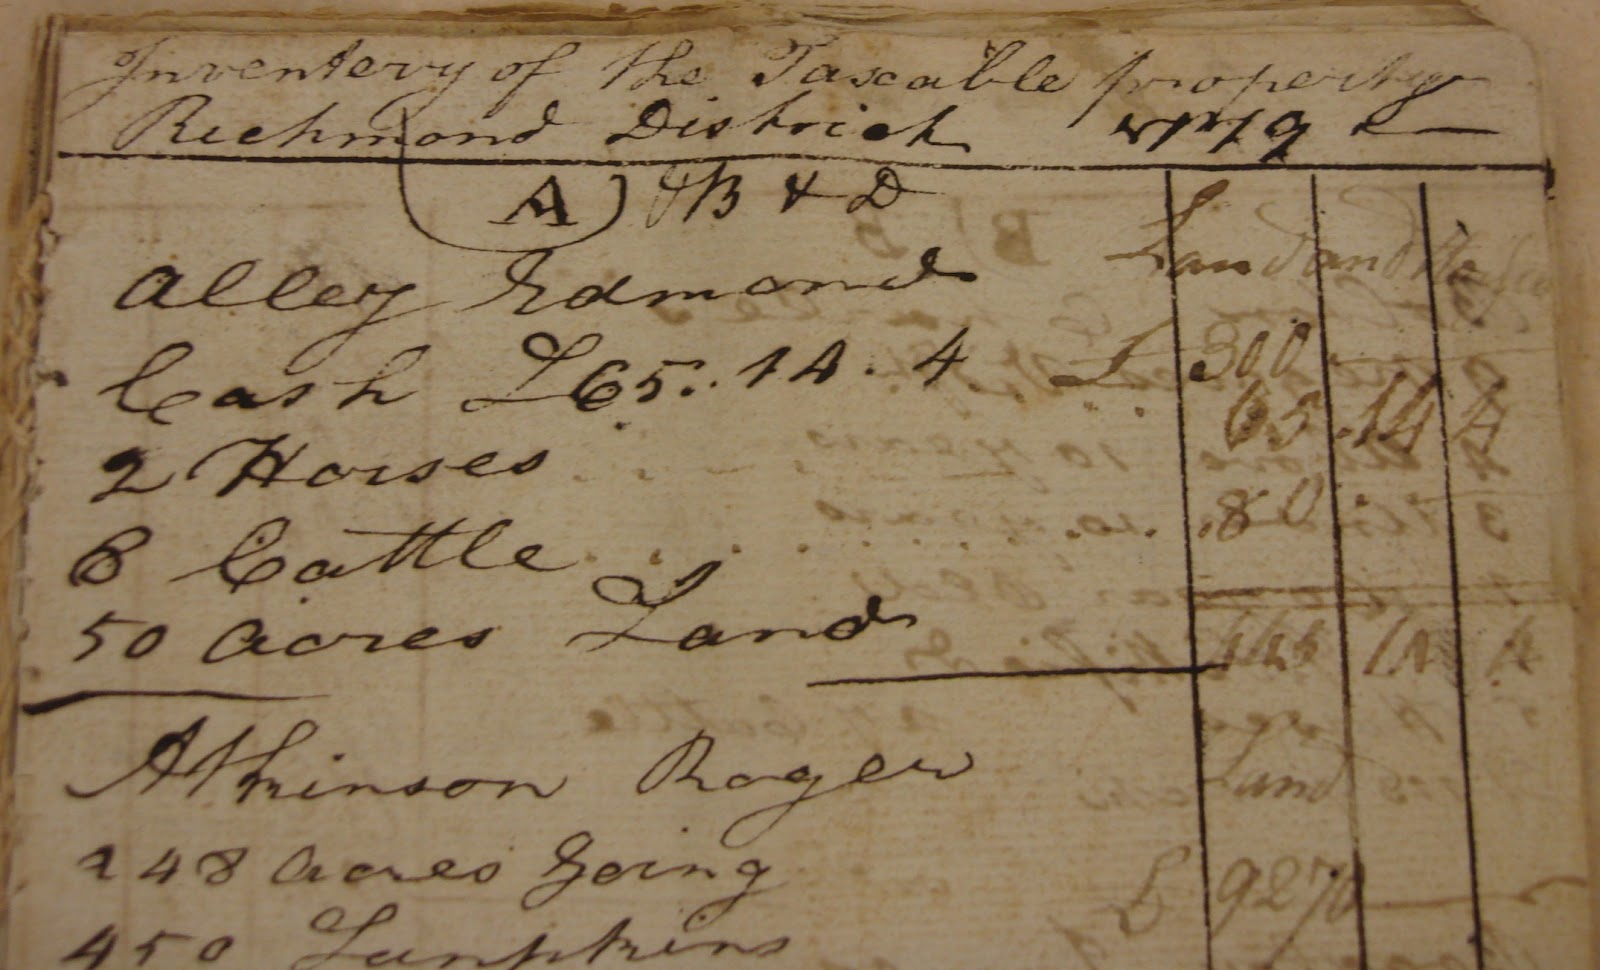 Inventery of the Taxable property
Richmond District 1779
A & B & D
Alley Edmond Land and
Cash £65..14.4 £ 300
65 14 4
2 Horses
80
6 Cattle
50 acres Land
445 14 4
Atkinson Roger Land
248 acres Going £ 9270
450 Lampkins